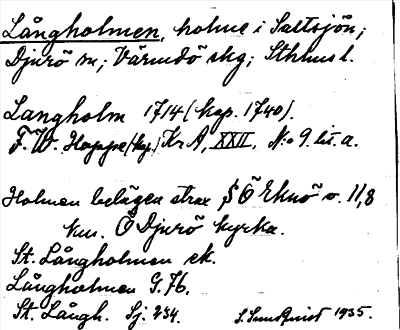 Långholmen, holme i Saltsjön;
Djurö sn; Värmdö skg; Sthlms l.
Langholm 1714 (kop. 1740).
F. W. Hoppe (ky.) Kr. A, XXII, N:o 9. lit. a.
Holmen belägen strax S Ö Eknö o. 11,8
km. Ö Djurö kyrka.
St. Långholmen ek.
Långholmen G. 76.
St. Långh. Sj. 234. S Sundqvist 1935.